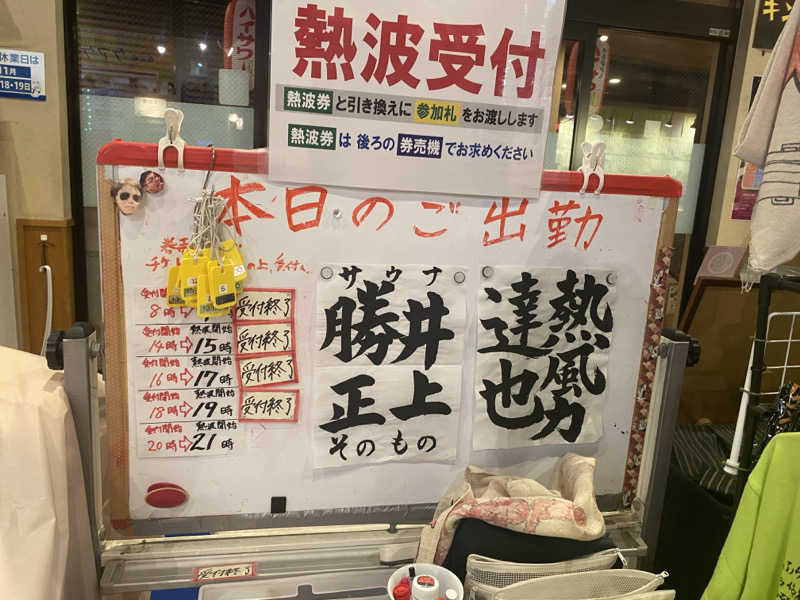 休業日は
11月
18・19日
熱波受付
熱波券と引き換えに参加札をお渡しします
熱波券は後ろの券売機でお求めください
本日のご出勤
受付
8時
受付終了
受付開始 熱波開始
14時⇨15時
受付終了
受付開始 熱波開始
16時⇨17時
受付終了
受付開始 熱波開始
18時⇨19時
受付終了
受付開始 熱波開始
20時⇨21時
サウナ
勝井
正上
そのもの
熱風力
達也
受付終了